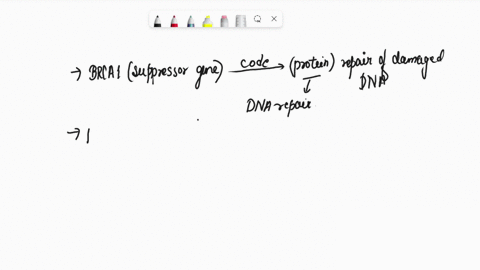 → BRCA1 (suppressor gene) code → (protein) repair of damaged DNA
↓
DNA repair
→ |